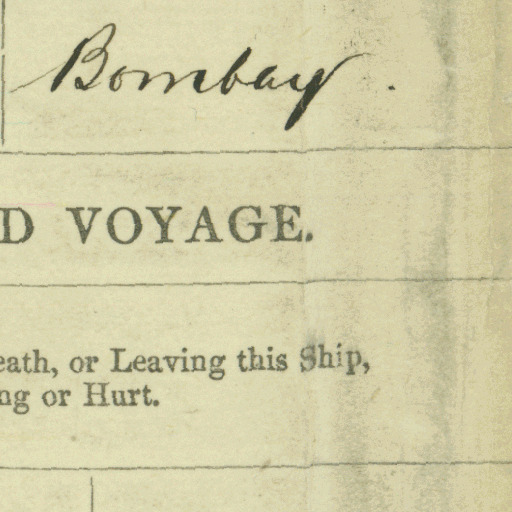 Bombay.
D VOYAGE.
eath, or Leaving this Ship,
ng or Hurt.